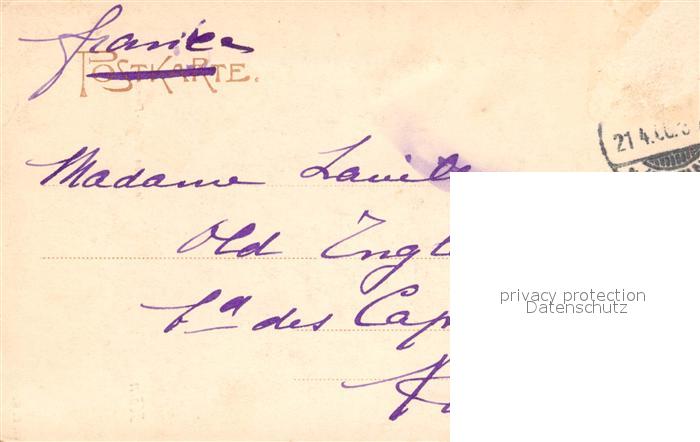 France
POSTKARTE.
21 4.00.
Madame Lavit
Old Engl
Bd des Cap
privacy protection
Datenschutz